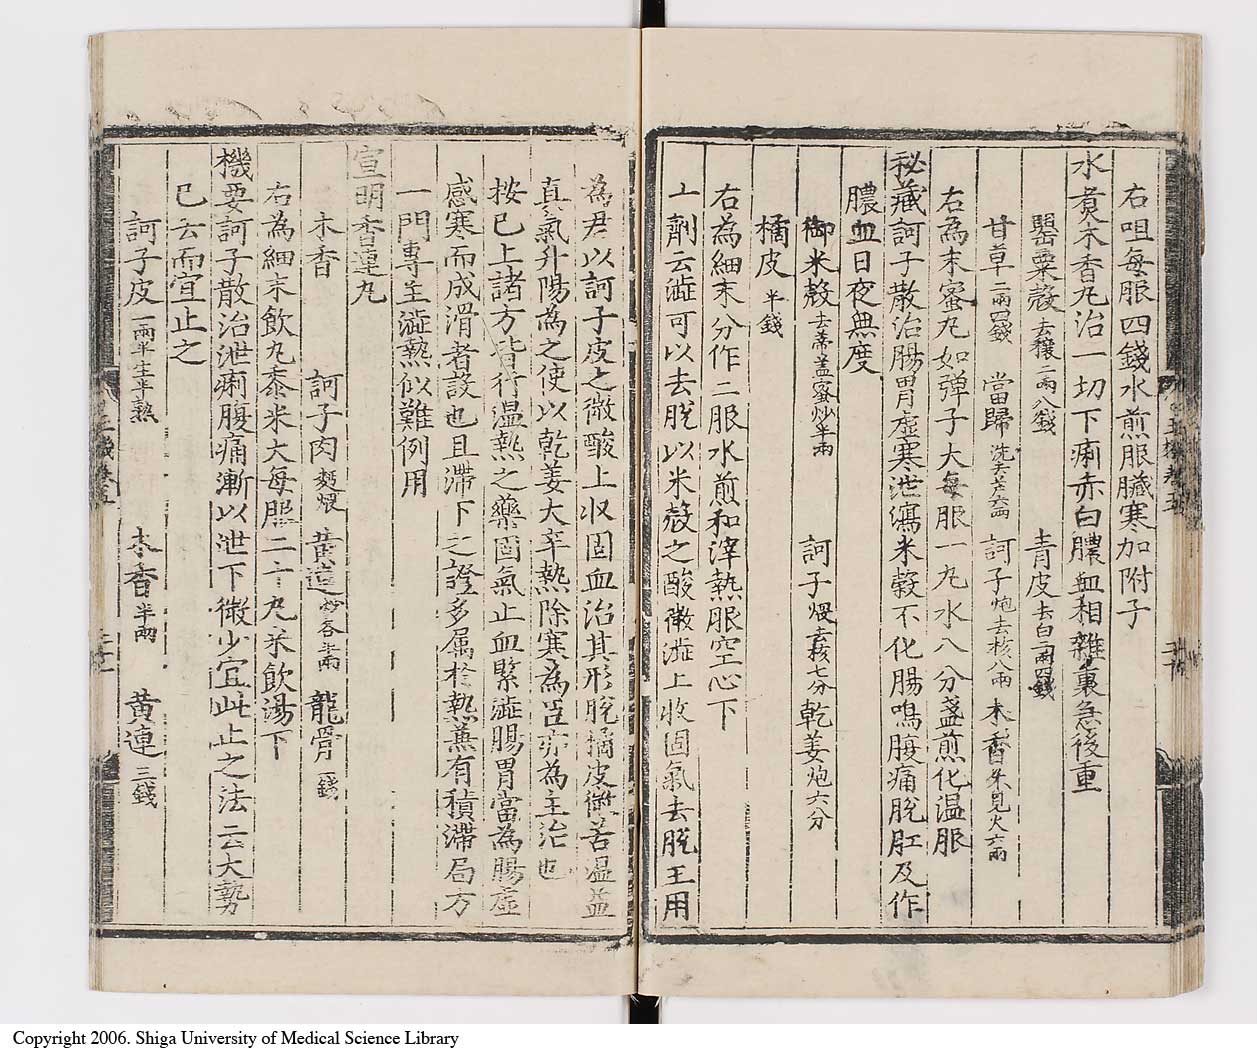 右咀每服四錢水煎服臟寒加附子
水煑木香丸治一切下痢赤白膿血相雜裏急後重
罂粟殼去穰二兩八錢 青皮去白二兩四錢
甘草二兩四錢 當歸洗去芦六兩 訶子炮去核八兩 木香不見火六兩
右為末蜜丸如弹子大每服一丸水八分盞煎化温服
秘藏訶子散治腸胃虛寒泄瀉米穀不化腸鳴腹痛脫肛及作
膿血日夜無度
御米殼去蒂盖蜜炒半兩 訶子煨去核七分 乾姜炮六分
橘皮半錢
右為細末分作二服水煎和滓熱服空心下
一劑云澁可以去脫以米殼之酸微澁上收固氣去脫主用
為君以訶子皮之微酸上收固血治其形脫橘皮微苦温益
真氣升陽為之使以乾姜大辛熱除寒為臣亦為主治也
按已上諸方皆行温熱之藥固氣止血緊澁腸胃當為腸虛
感寒而成滑者設也且滯下之證多属於熱蒹有積滯局方
一門專主澁熱似難例用
宣明香連丸
木香 訶子肉麵煨 黄連炒各半兩 龍骨二錢
右為細末飲丸黍米大每服二十丸米飲湯下
機要訶子散治泄痢腹痛漸以泄下微少宜此止之法云大勢
已去而宣止之
訶子皮一兩半生半熟 木香半兩 黄連三錢
玉機卷五